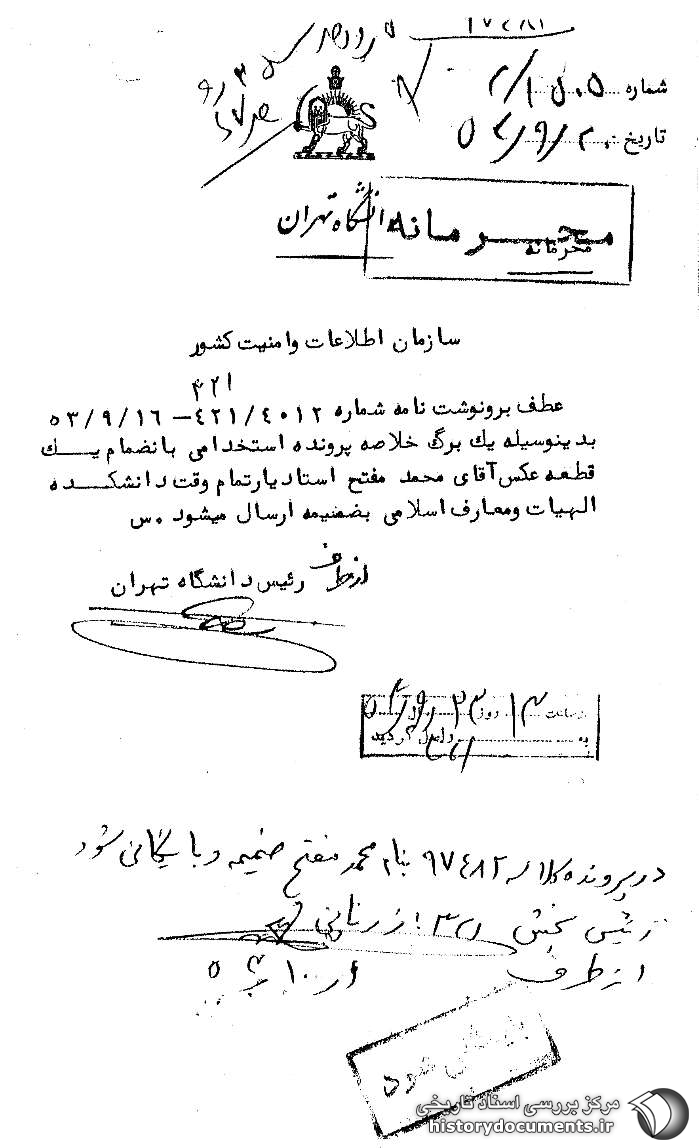 ۹۷۴۸۲
شماره ۲/۱۵۰۵
تاریخ ۵۳/۹/۲۰
دانشگاه تهران
محرمانه
محرمانه
سازمان اطلاعات وامنیت کشور
۴۲۱
عطف برونوشت نامه شماره ۴۲۱/۴۰۱۲ – ۵۳/۹/۱۶
بدینوسیله یك برگ خلاصه پرونده استخدامی بانضمام یك
قطعه عکس آقای محمد مفتح استادیار تمام وقت دانشکده
الهیات ومعارف اسلامی بضمیمه ارسال میشود .س
ازطرف رئیس دانشگاه تهران
ساعت ۱۳ روز ۲۳
به ۴۲۱ داخل گردید
در پرونده کلاسه ۹۷۴۸۲ بنام محمد مفتح ضمیمه و بایگانی شود
رئیس بخش ۳۵۱
از طرف
بایگانی شود
مرکز بررسی اسناد تاریخی
historydocuments.ir